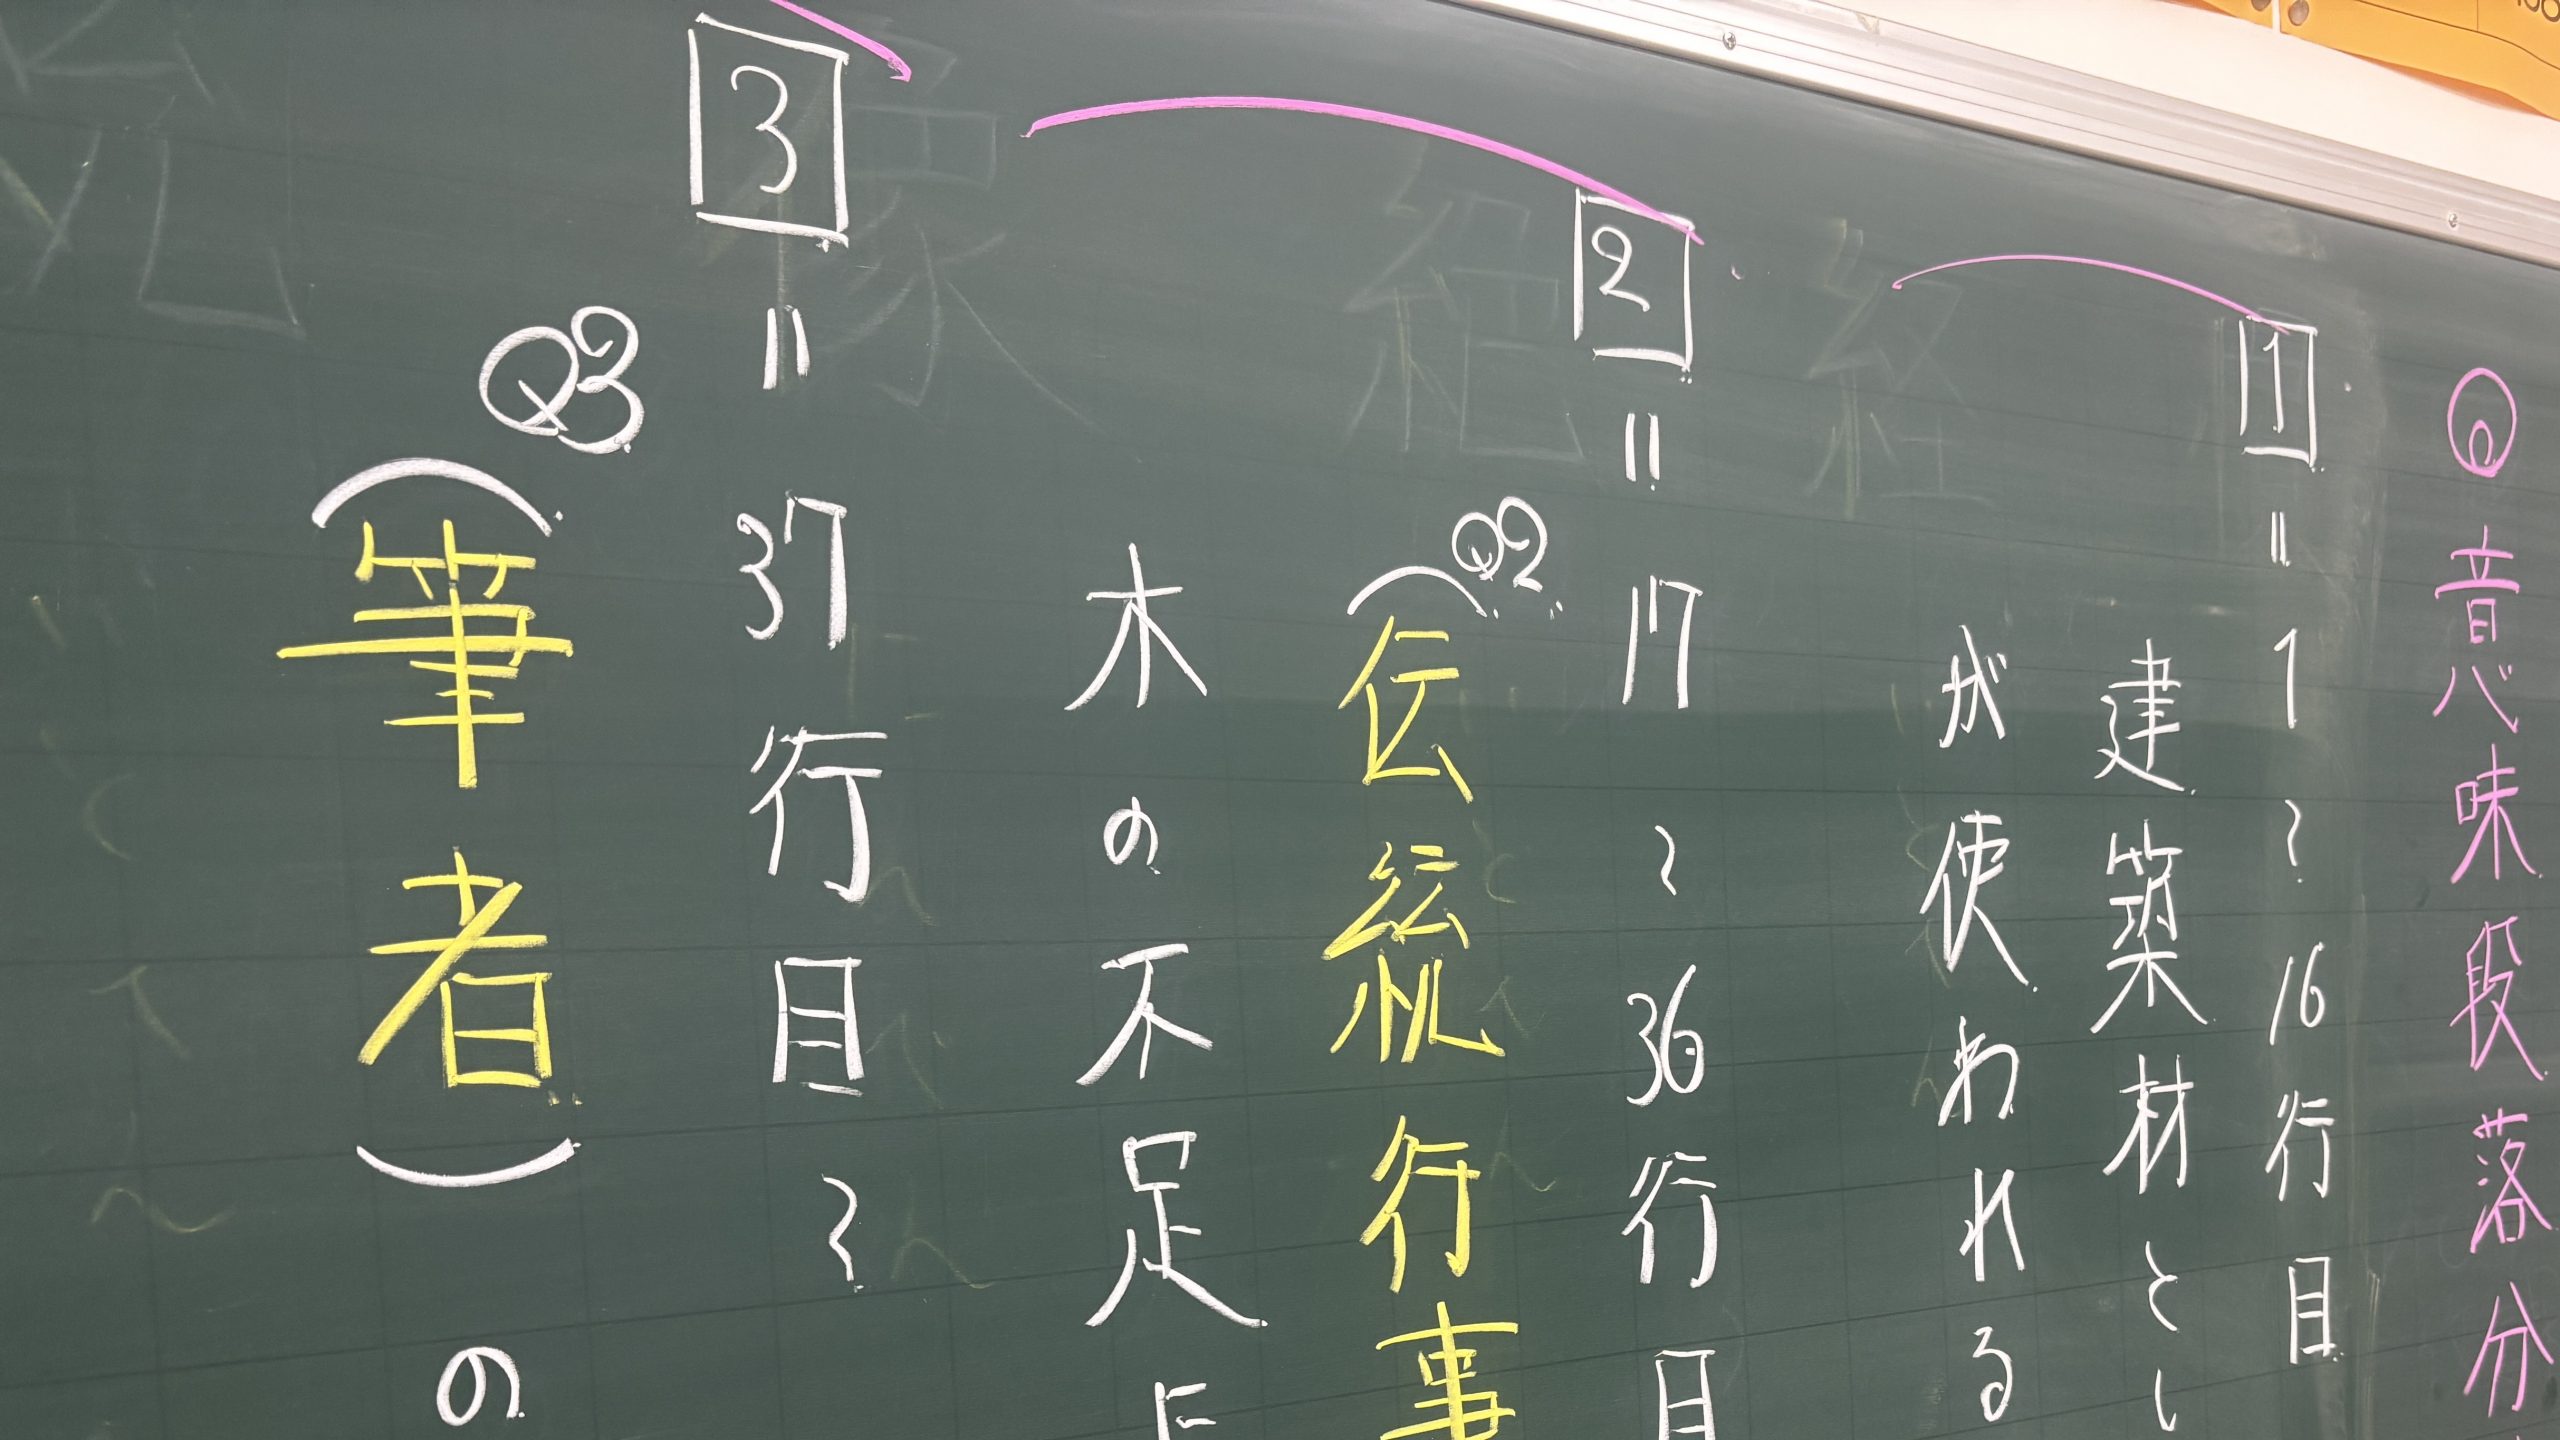 ◎意味段落分
1＝1～16行目
建築材とし
が使われる
2＝17～36行目
Q2
（伝統行事
木の不足に
3＝37行目～
Q3
（筆者）の